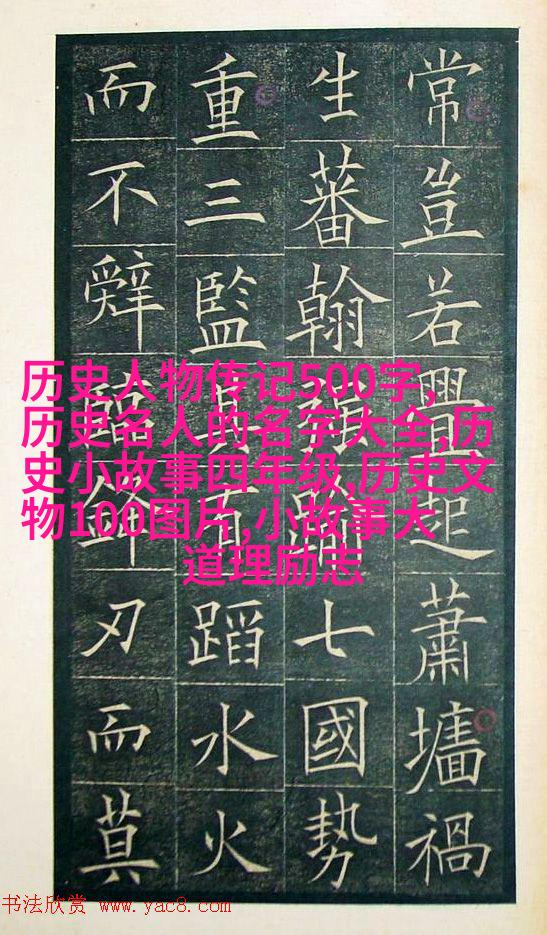 常豈若起蕭墻禍
生蕃翰強踰七國勢
重三監其有蹈水火
而不辭臨鋒刃而莫
历史人物传记500字,
历史名人的名字大全,历
史小故事四年级,历史文
物100图片,小故事大
道理励志
书法欣赏 www.yac8.com